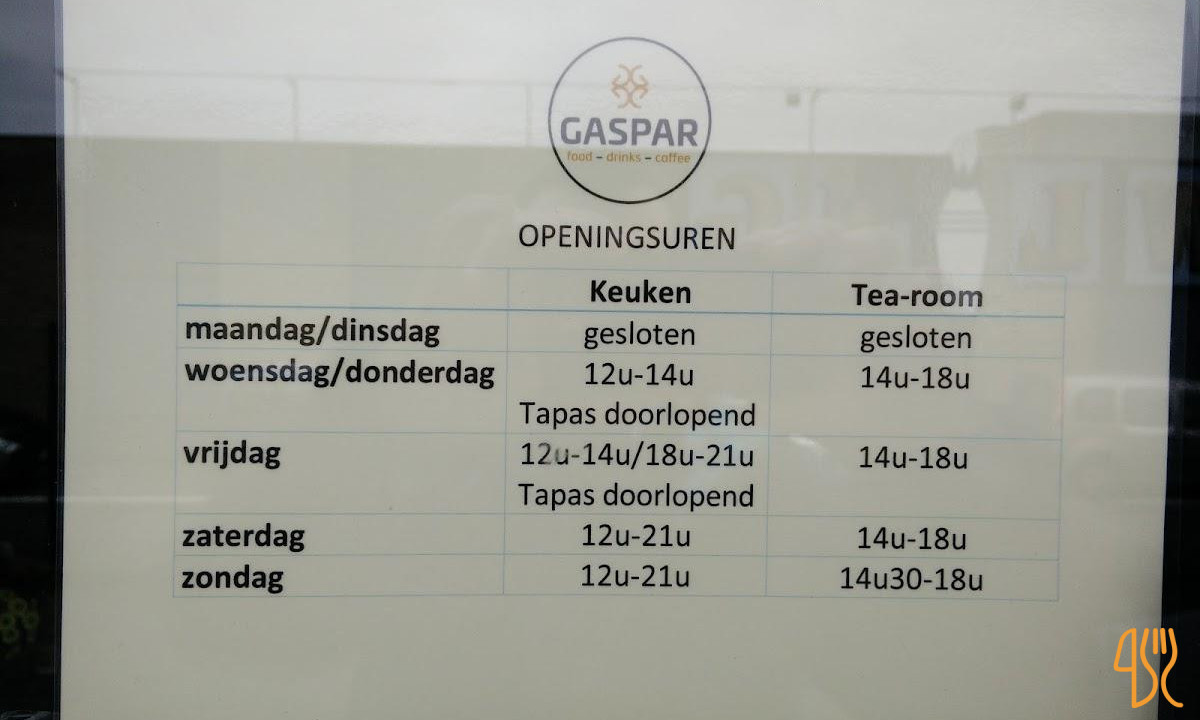 GASPAR
food – drinks – coffee
OPENINGSUREN
Keuken Tea-room
maandag/dinsdag gesloten gesloten
woensdag/donderdag 12u-14u 14u-18u
Tapas doorlopend
vrijdag 12u-14u/18u-21u 14u-18u
Tapas doorlopend
zaterdag 12u-21u 14u-18u
zondag 12u-21u 14u30-18u